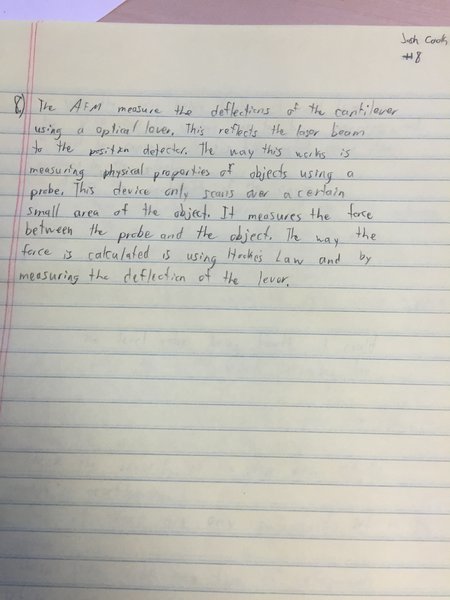 Josh Cook
#8
8.) The AFM measure the deflections of the cantilever
using a optical lover. This reflects the laser beam
to the position detector. The way this works is
measuring physical properties of objects using a
probe. This device only scans over a certain
small area of the object. It measures the force
between the probe and the object. The way the
force is calculated is using Hookes Law and by
measuring the deflection of the lever.